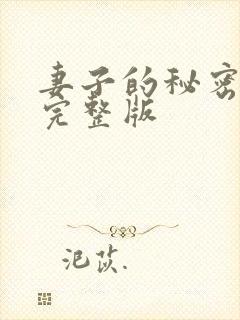 妻子的秘密
完整版
汜苡.